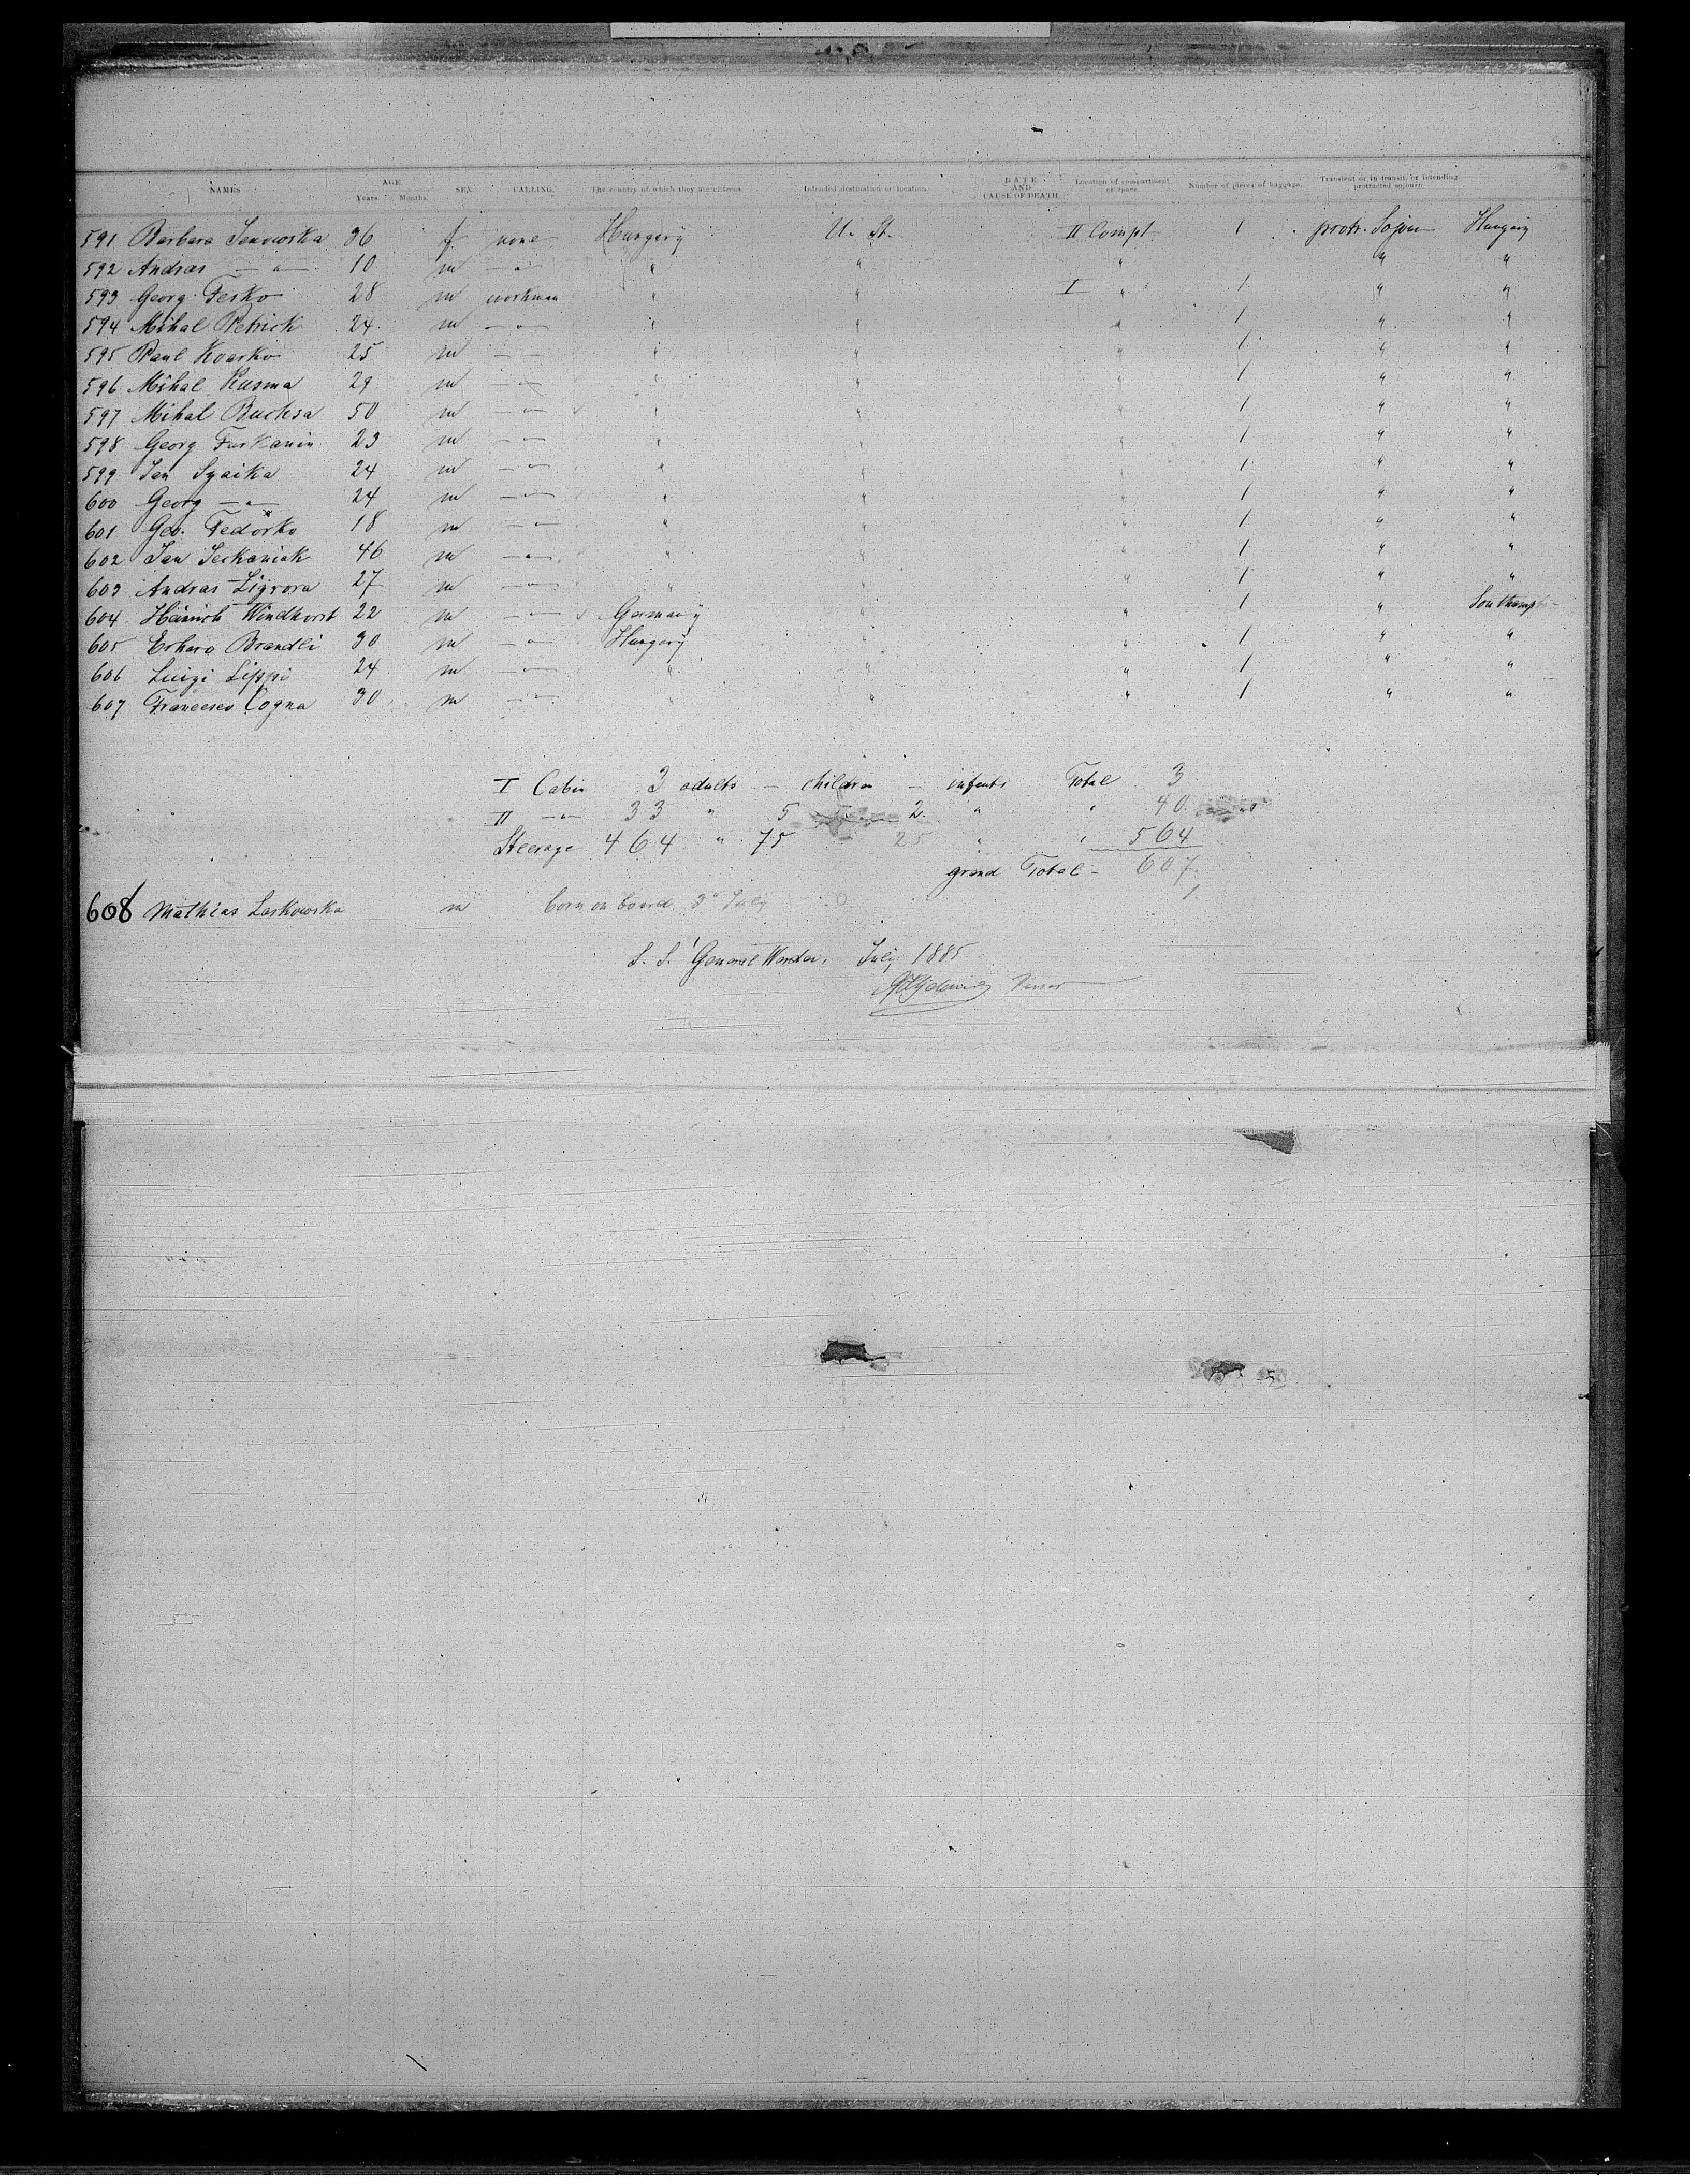 NAMES AGE. Years. Months. SEX CALLING. The country of which they are citizens. Intended destination or location. DATE AND CAUSE OF DEATH. Location of compartment or space. Number of pieces of baggage. Transient or in transit, or intending protracted sojourn.
591 Barbara Janowska 36 f none Hungary U. St. II Compt 1 protr. Sojour Hungary
592 Andras — " — 10 m — " — " " " " "
593 Georg Fesko 28 m workman " " I " 1 " "
594 Mihal Petrick 24 m — " — " " " 1 " "
595 Paul Kvasko 25 m — " — " " " 1 " "
596 Mihal Kusma 29 m — " — " " " 1 " "
597 Mihal Bucksa 50 m — " — " " " 1 " "
598 Georg Furkanin 23 m — " — " " " 1 " "
599 Jan Szaika 24 m — " — " " " 1 " "
600 Georg — " — 24 m — " — " " " 1 " "
601 Geo. Fedorko 18 m — " — " " " 1 " "
602 Jan Jeckaniak 46 m — " — " " " 1 " "
603 Andras Ligvora 27 m — " — " " " 1 " "
604 Heinrich Windhorst 22 m — " — Germany " " 1 " Southampt
605 Erhard Brandli 30 m — " — Hungary " " 1 " "
606 Luigi Lippi 24 m — " — " " " 1 " "
607 Francesco Cogna 30 m — " — " " " 1 " "
I Cabin 3 adults — children — infants Total 3
II — " — 33 " 5 2 " " 40
Steerage 464 " 75 25 " " 564
grand Total - 607
1.
608 Mathias Laskowska m born on board 3d July
S. S. General Werder, July 1885